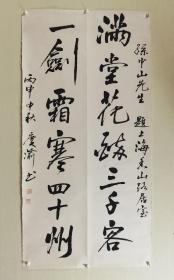 孫中山先生 題上海香山路居室
滿堂花醉三千客
一劍霜寒四十州
丙申中秋 慶渝书